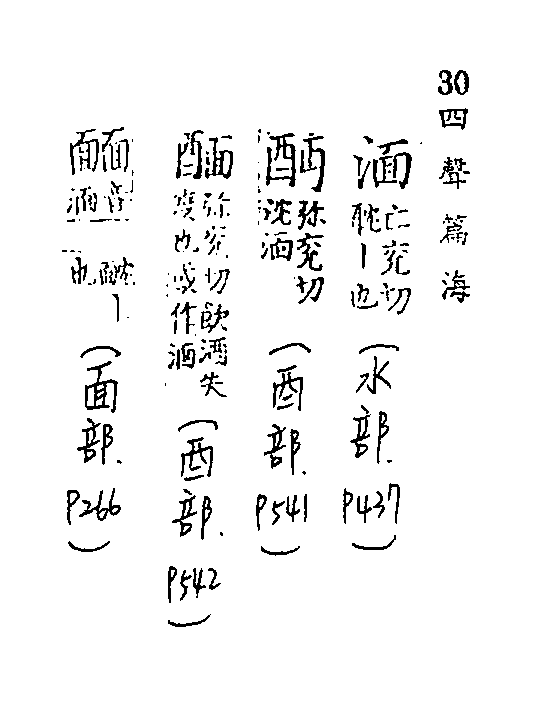 30四聲篇海
湎亡兖切
耽丨也（水部.P437）
弥兖切
沈湎（酉部.P541）
弥兖切飲酒失
度也或作湎（酉部.P542）
音
湎
丨
也（面部.P266）